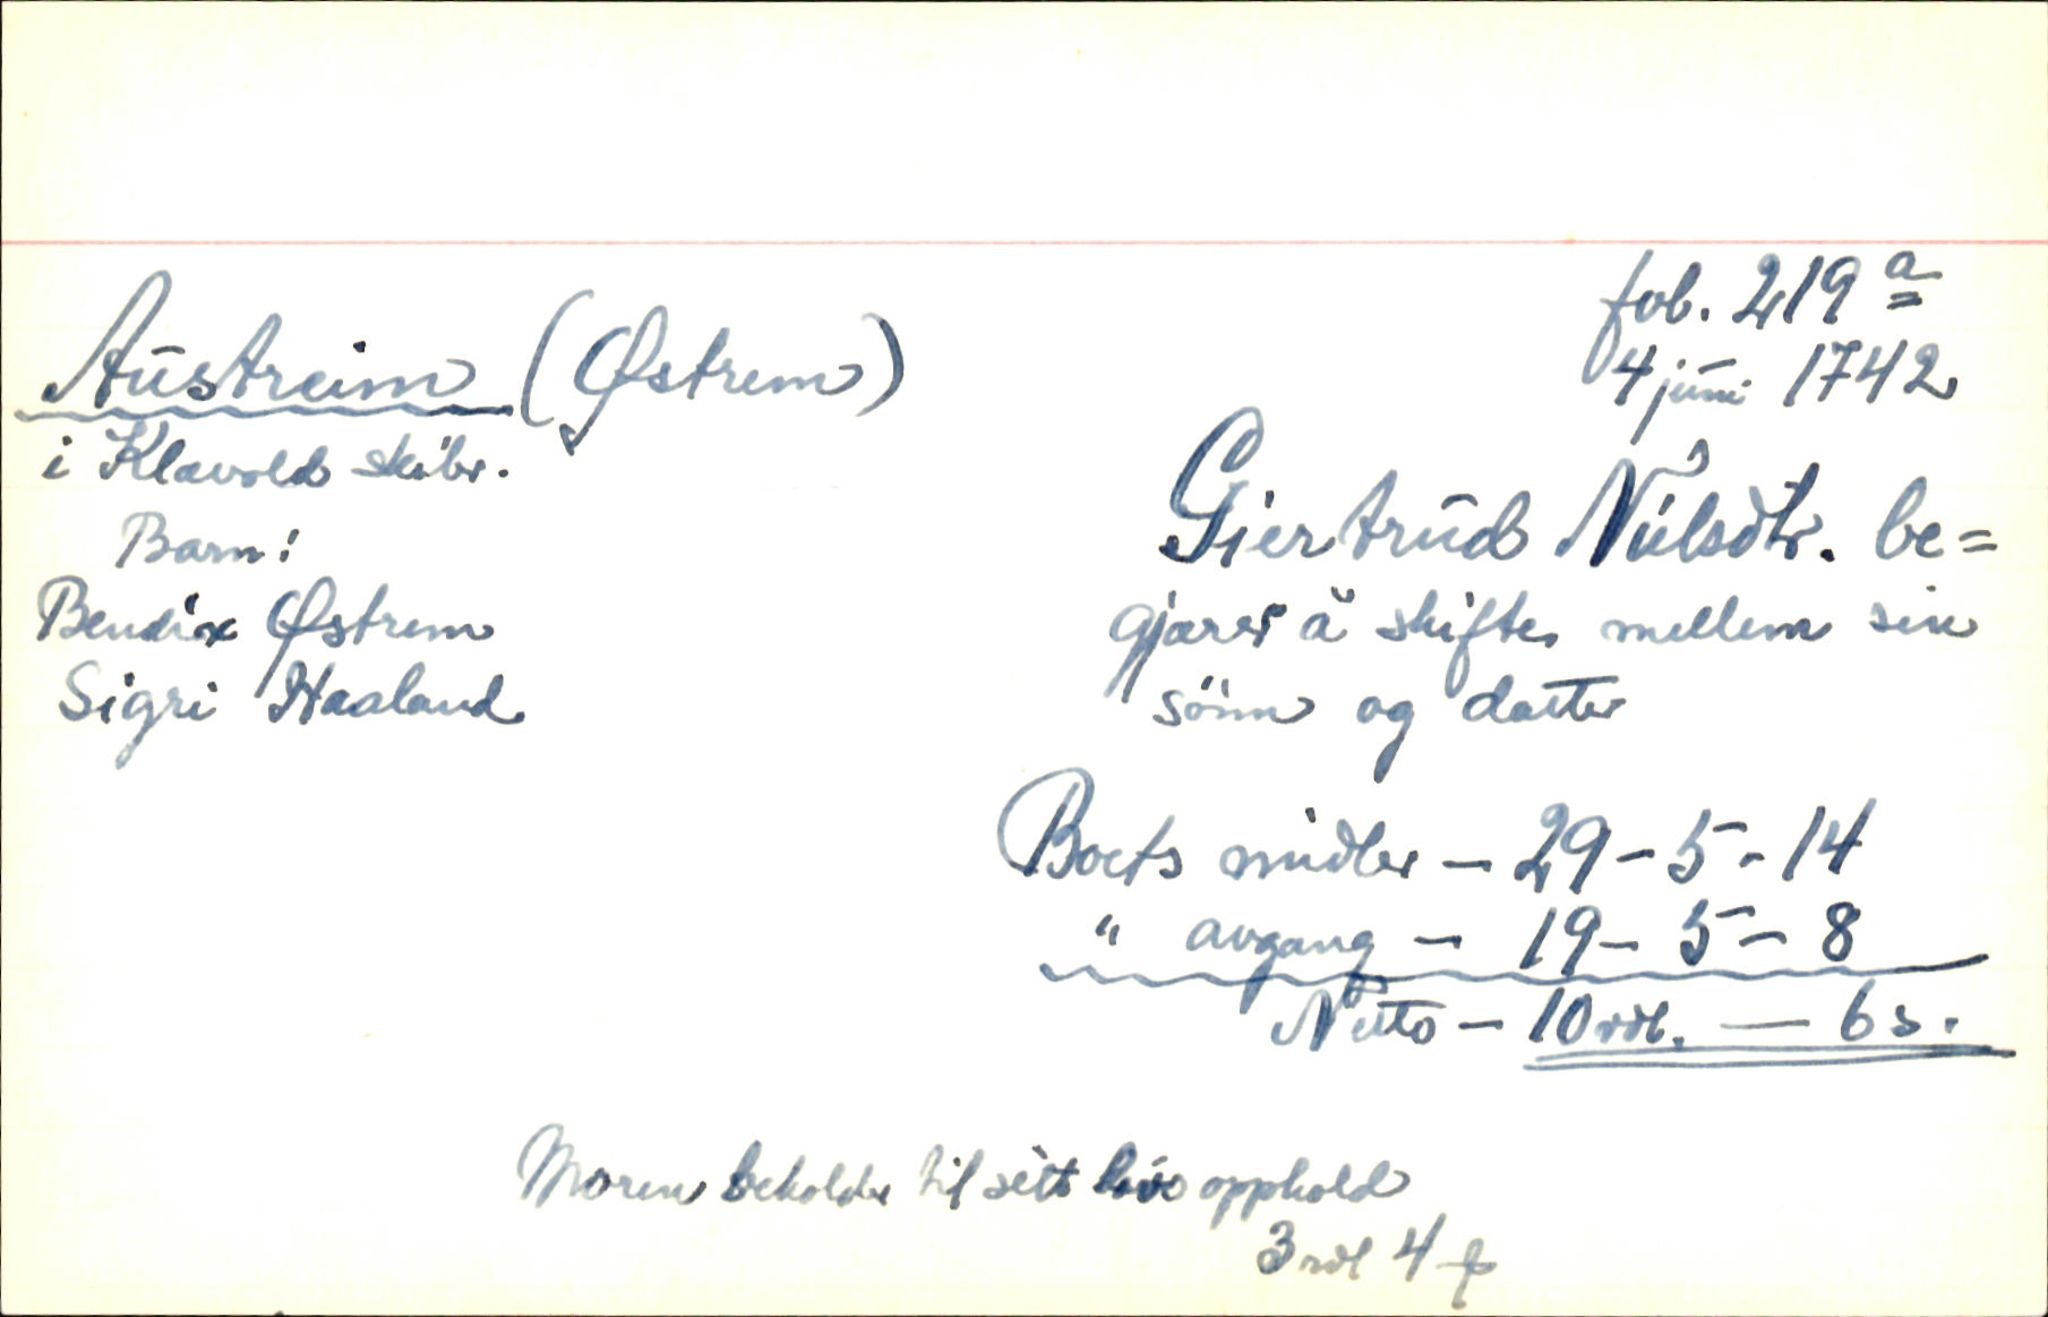 fol. 219 a
4 juni 1742
Austreim (Østrem)
i Klavold skibr.
Barn:
Bendix Østrem
Sigri Haaland
Giertrud Nilsdtr. be=
gjærer å skifte mellem sin
sönn og datter
Boets midler - 29 - 5 - 14
" avgang - 19 - 5 - 8
Netto - 10 rdl. - 6 s.
Moren beholder til sitt livs opphold
3 rdl 4